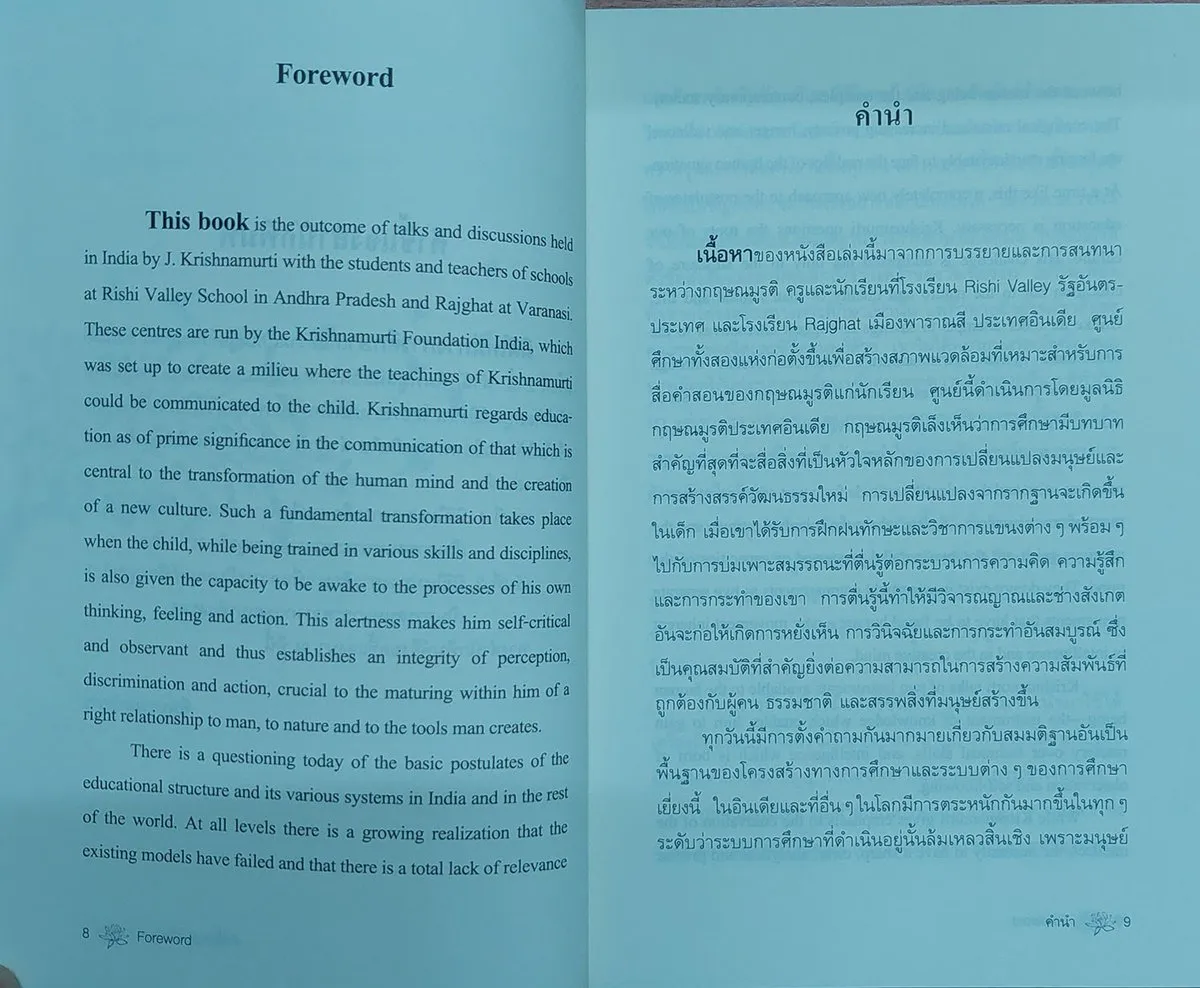 Foreword
This book is the outcome of talks and discussions held
in India by J. Krishnamurti with the students and teachers of schools
at Rishi Valley School in Andhra Pradesh and Rajghat at Varanasi.
These centres are run by the Krishnamurti Foundation India, which
was set up to create a milieu where the teachings of Krishnamurti
could be communicated to the child. Krishnamurti regards educa-
tion as of prime significance in the communication of that which is
central to the transformation of the human mind and the creation
of a new culture. Such a fundamental transformation takes place
when the child, while being trained in various skills and disciplines,
is also given the capacity to be awake to the processes of his own
thinking, feeling and action. This alertness makes him self-critical
and observant and thus establishes an integrity of perception,
discrimination and action, crucial to the maturing within him of a
right relationship to man, to nature and to the tools man creates.
There is a questioning today of the basic postulates of the
educational structure and its various systems in India and in the rest
of the world. At all levels there is a growing realization that the
existing models have failed and that there is a total lack of relevance
8 Foreword
คำนำ
เนื้อหาของหนังสือเล่มนี้มาจากการบรรยายและการสนทนา
ระหว่างกฤษณมูรติ ครูและนักเรียนที่โรงเรียน Rishi Valley รัฐอันตร-
ประเทศ และโรงเรียน Rajghat เมืองพาราณสี ประเทศอินเดีย ศูนย์
ศึกษาทั้งสองแห่งก่อตั้งขึ้นเพื่อสร้างสภาพแวดล้อมที่เหมาะสำหรับการ
สื่อคำสอนของกฤษณมูรติแก่นักเรียน ศูนย์นี้ดำเนินการโดยมูลนิธิ
กฤษณมูรติประเทศอินเดีย กฤษณมูรติเล็งเห็นว่าการศึกษามีบทบาท
สำคัญที่สุดที่จะสื่อสิ่งที่เป็นหัวใจหลักของการเปลี่ยนแปลงมนุษย์และ
การสร้างสรรค์วัฒนธรรมใหม่ การเปลี่ยนแปลงจากรากฐานจะเกิดขึ้น
ในเด็ก เมื่อเขาได้รับการฝึกฝนทักษะและวิชาการแขนงต่าง ๆ พร้อม ๆ
ไปกับการบ่มเพาะสมรรถนะที่ตื่นรู้ต่อกระบวนการความคิด ความรู้สึก
และการกระทำของเขา การตื่นรู้นี้ทำให้มีวิจารณญาณและช่างสังเกต
อันจะก่อให้เกิดการหยั่งเห็น การวินิจฉัยและการกระทำอันสมบูรณ์ ซึ่ง
เป็นคุณสมบัติที่สำคัญยิ่งต่อความสามารถในการสร้างความสัมพันธ์ที่
ถูกต้องกับผู้คน ธรรมชาติ และสรรพสิ่งที่มนุษย์สร้างขึ้น
ทุกวันนี้มีการตั้งคำถามกันมากมายเกี่ยวกับสมมติฐานอันเป็น
พื้นฐานของโครงสร้างทางการศึกษาและระบบต่าง ๆ ของการศึกษา
เยี่ยงนี้ ในอินเดียและที่อื่น ๆ ในโลกมีการตระหนักกันมากขึ้นในทุก ๆ
ระดับว่าระบบการศึกษาที่ดำเนินอยู่นั้นล้มเหลวสิ้นเชิง เพราะมนุษย์
คำนำ 9